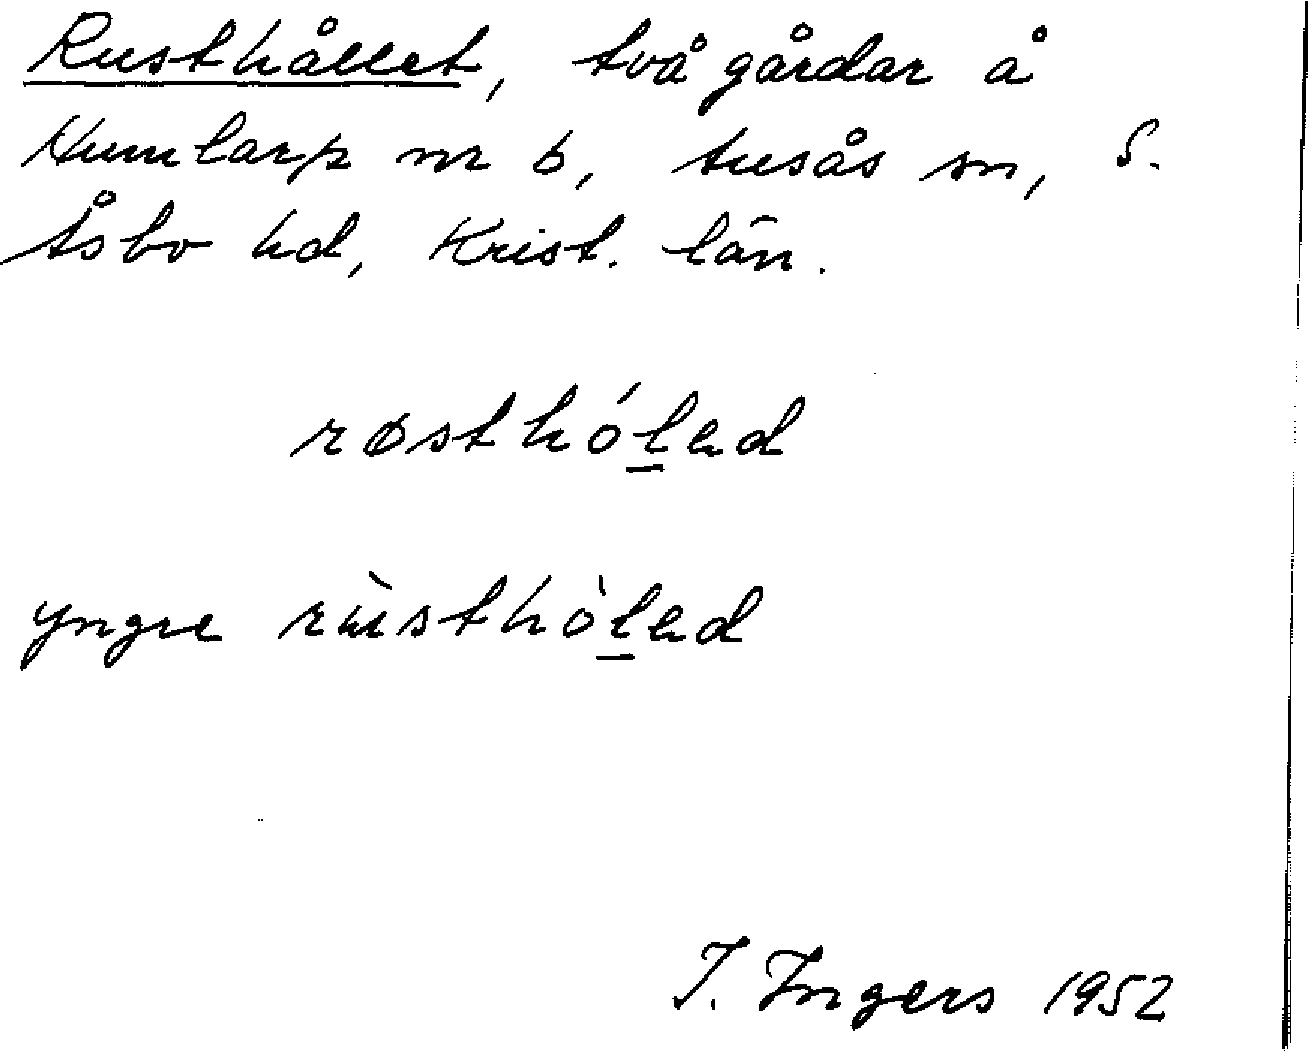 Rusthållet, två gårdar å
Humlarp nr 6, Ausås sn, S.
Åsbo hd, Krist. län.
røsthóḻəd
yngre rùsthòḻəd
I. Ingers 1952